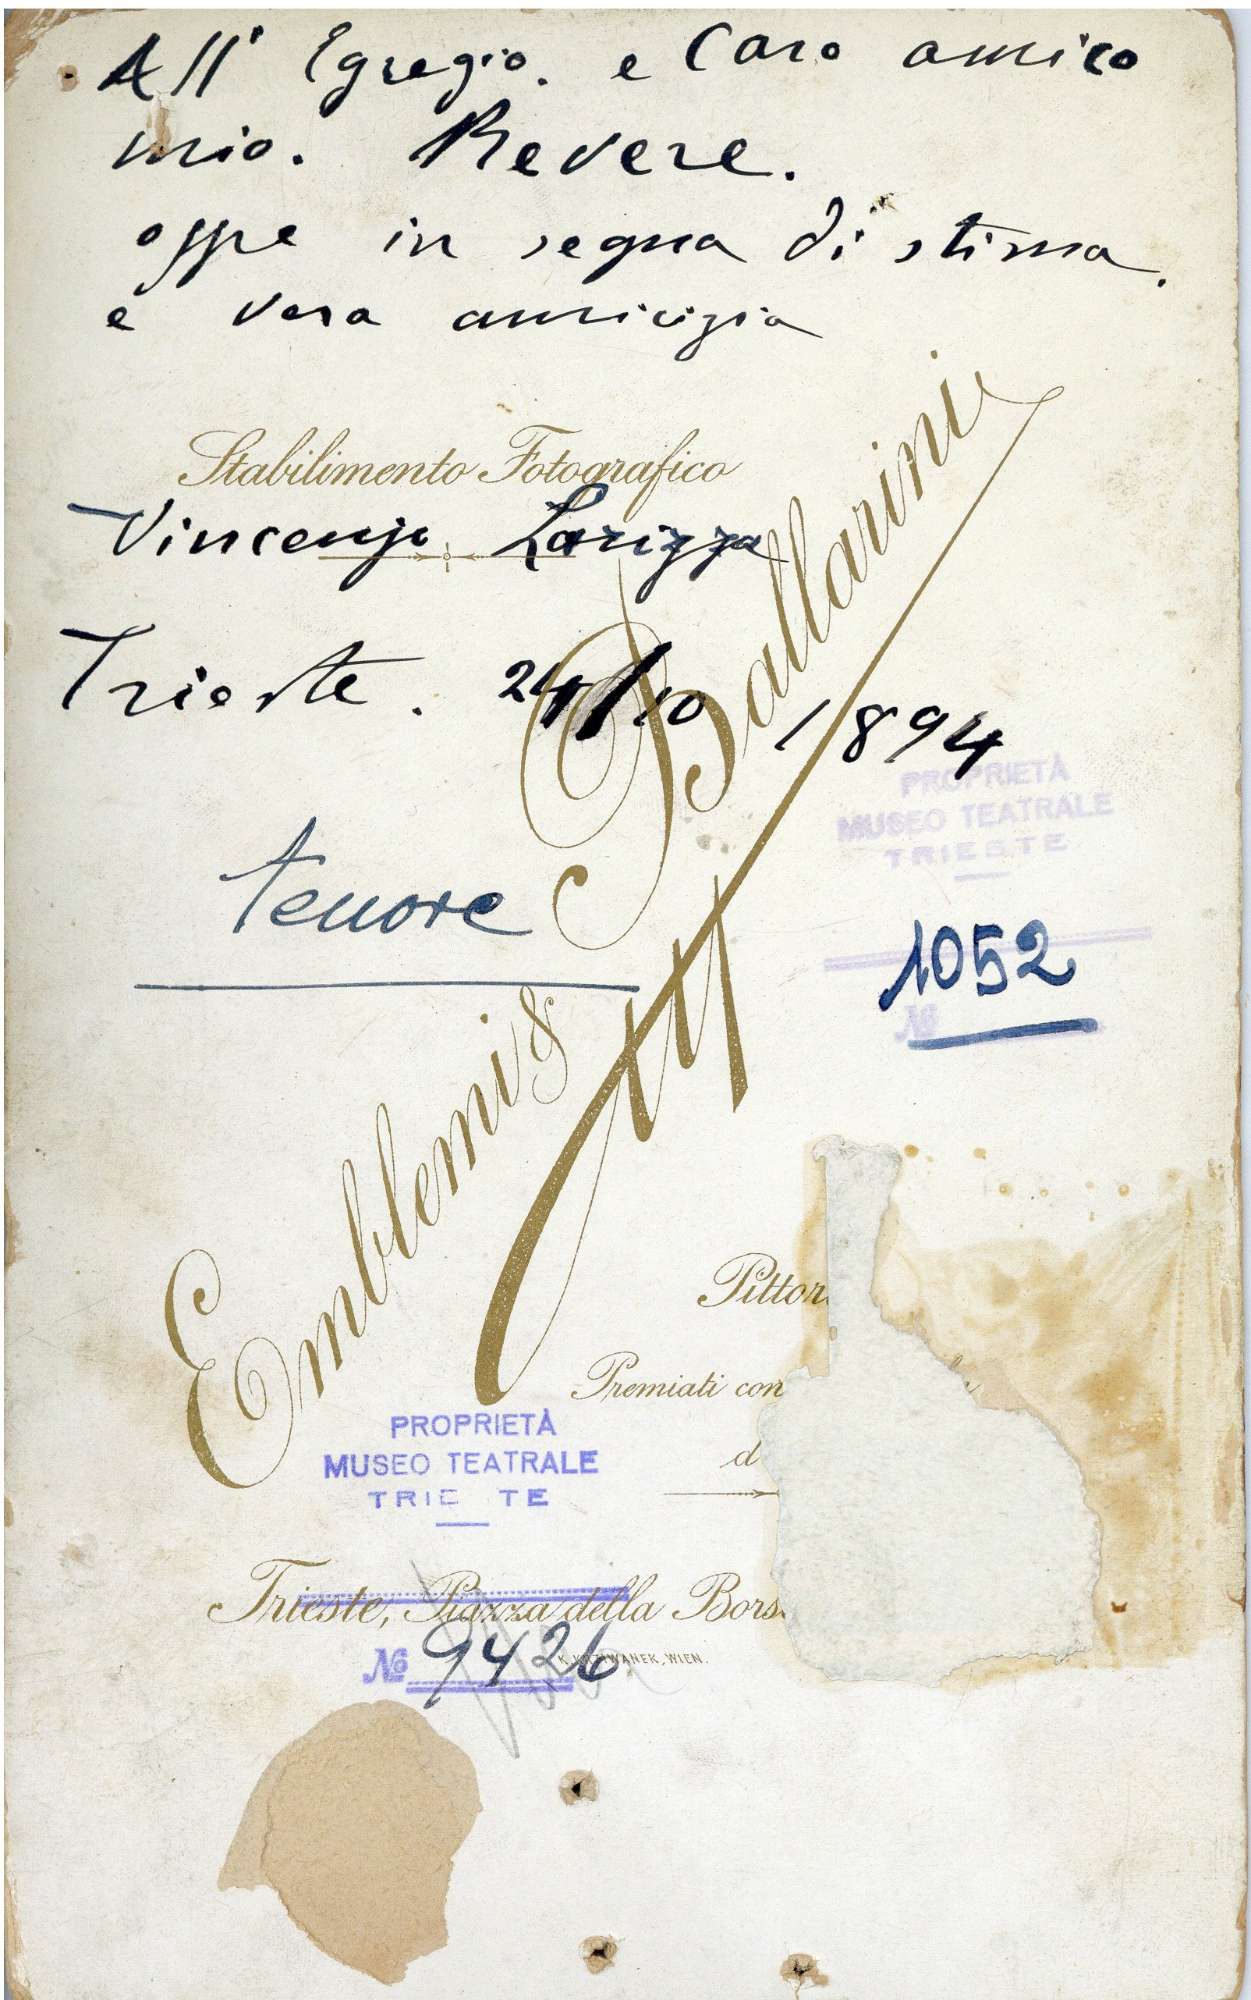 All' Egregio. e Caro amico
mio. Revere.
offre in segna di stima.
e vera amicizia
Stabilimento Fotografico
Vincenzo Larizza
Trieste. 24/10/1894
Emblemi & Ballarini
tenore
PROPRIETÀ
MUSEO TEATRALE
TRIESTE
1052
№
Pittor
Premiati con
d
PROPRIETÀ
MUSEO TEATRALE
TRIE TE
Trieste, Piazza della Bors
№ 9426
K.KRZIWANEK, WIEN.